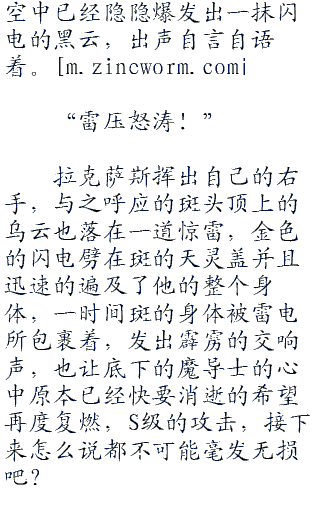 空中已经隐隐爆发出一抹闪
电的黑云，出声自言自语
着。[m.zincworm.com]
“雷压怒涛！”
拉克萨斯挥出自己的右
手，与之呼应的斑头顶上的
乌云也落在一道惊雷，金色
的闪电劈在斑的天灵盖并且
迅速的遍及了他的整个身
体，一时间斑的身体被雷电
所包裹着，发出霹雳的交响
声，也让底下的魔导士的心
中原本已经快要消逝的希望
再度复燃，S级的攻击，接下
来怎么说都不可能毫发无损
吧？